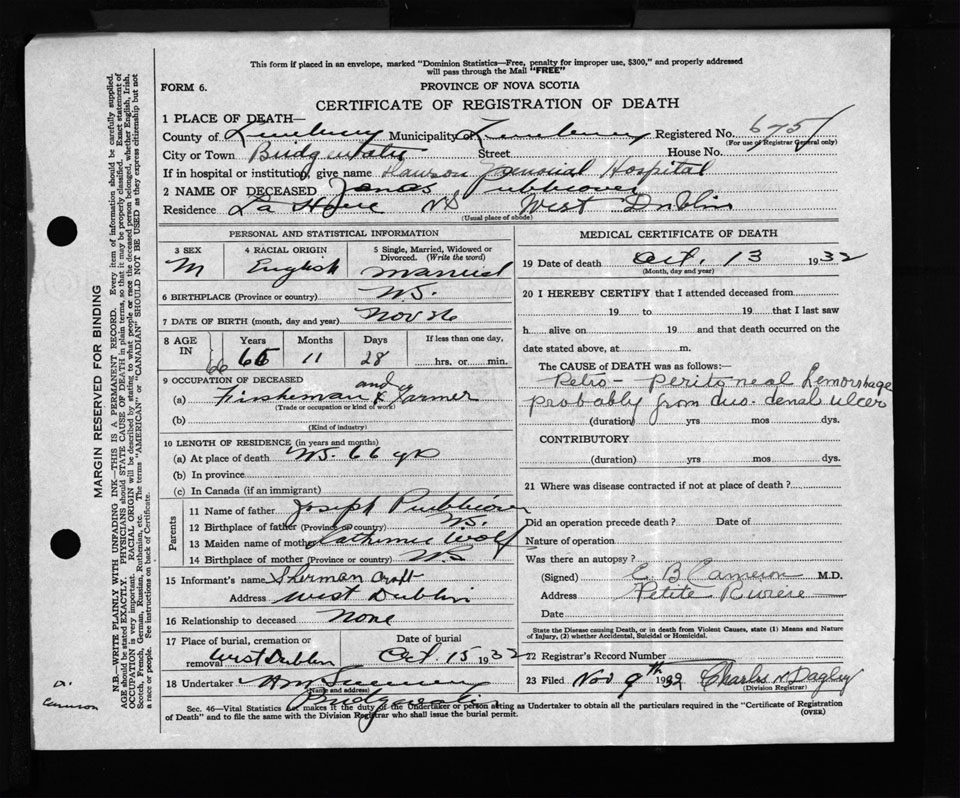 This form if placed in an envelope, marked "Dominion Statistics—Free, penalty for improper use, $300," and properly addressed
will pass through the Mail "FREE"
FORM 6.
PROVINCE OF NOVA SCOTIA
CERTIFICATE OF REGISTRATION OF DEATH
1 PLACE OF DEATH—
County of Lunenburg Municipality of Lunenburg Registered No. 675
(For use of Registrar General only)
City or Town Bridgewater Street House No.
If in hospital or institution, give name Dawson Memorial Hospital
2 NAME OF DECEASED Jonas Publicover
Residence La Have NS West Dublin
(Usual place of abode)
PERSONAL AND STATISTICAL INFORMATION
3 SEX 4 RACIAL ORIGIN 5 Single, Married, Widowed or Divorced. (Write the word)
M English Married
6 BIRTHPLACE (Province or country) NS.
7 DATE OF BIRTH (month, day and year) Nov 26
8 AGE IN Years Months Days If less than one day,
66 11 28 hrs. or min.
9 OCCUPATION OF DECEASED
(a) Fisherman and Farmer
(Trade or occupation or kind of work)
(b)
(Kind of industry)
10 LENGTH OF RESIDENCE (in years and months)
(a) At place of death NS. 66 yrs
(b) In province
(c) In Canada (if an immigrant)
Parents
11 Name of father Joseph Publicover
12 Birthplace of father (Province or country) NS.
13 Maiden name of mother Catherine Wolf
14 Birthplace of mother (Province or country) N.S
15 Informant's name Sherman Croft
Address West Dublin
16 Relationship to deceased None
17 Place of burial, cremation or removal Date of burial
West Dublin Oct 15 1932
18 Undertaker
(Name and address)
MEDICAL CERTIFICATE OF DEATH
19 Date of death Oct. 13 1932
(Month, day and year)
20 I HEREBY CERTIFY that I attended deceased from
19 to 19 that I last saw
h alive on 19 and that death occurred on the
date stated above, at m.
The CAUSE OF DEATH was as follows:
Retro-peritoneal hemorrhage
probably from duodenal ulcer
(duration) yrs mos dys.
CONTRIBUTORY
(duration) yrs mos dys.
21 Where was disease contracted if not at place of death?
Did an operation precede death? Date of
Nature of operation
Was there an autopsy?
(Signed) C. B. Cameron M.D.
Address Petite Riviere
Date
State the Disease causing Death, or in death from Violent Causes, state (1) Means and Nature
of Injury, (2) whether Accidental, Suicidal or Homicidal.
22 Registrar's Record Number
23 Filed Nov 9th 1932 Charles N Dagley
(Division Registrar)
Sec. 46—Vital Statistics Act makes it the duty of the Undertaker or person acting as Undertaker to obtain all the particulars required in the "Certificate of Registration
of Death" and to file the same with the Division Registrar who shall issue the burial permit.
(OVER)
MARGIN RESERVED FOR BINDING
N.B.—WRITE PLAINLY WITH UNFADING INK—THIS IS A PERMANENT RECORD. Every item of information should be carefully supplied.
AGE should be stated EXACTLY. PHYSICIANS should STATE CAUSE OF DEATH in plain terms, so that it may be properly classified. Exact statement of
OCCUPATION is very important. RACIAL ORIGIN will be described by stating to what people or race the deceased person belonged, whether English, Irish,
Scotch, French, German, Russian, Ruthenian, etc. The terms "AMERICAN" or "CANADIAN" SHOULD NOT BE USED as they express citizenship but not
a race or people. See instructions on back of Certificate.
Dr.
Cameron